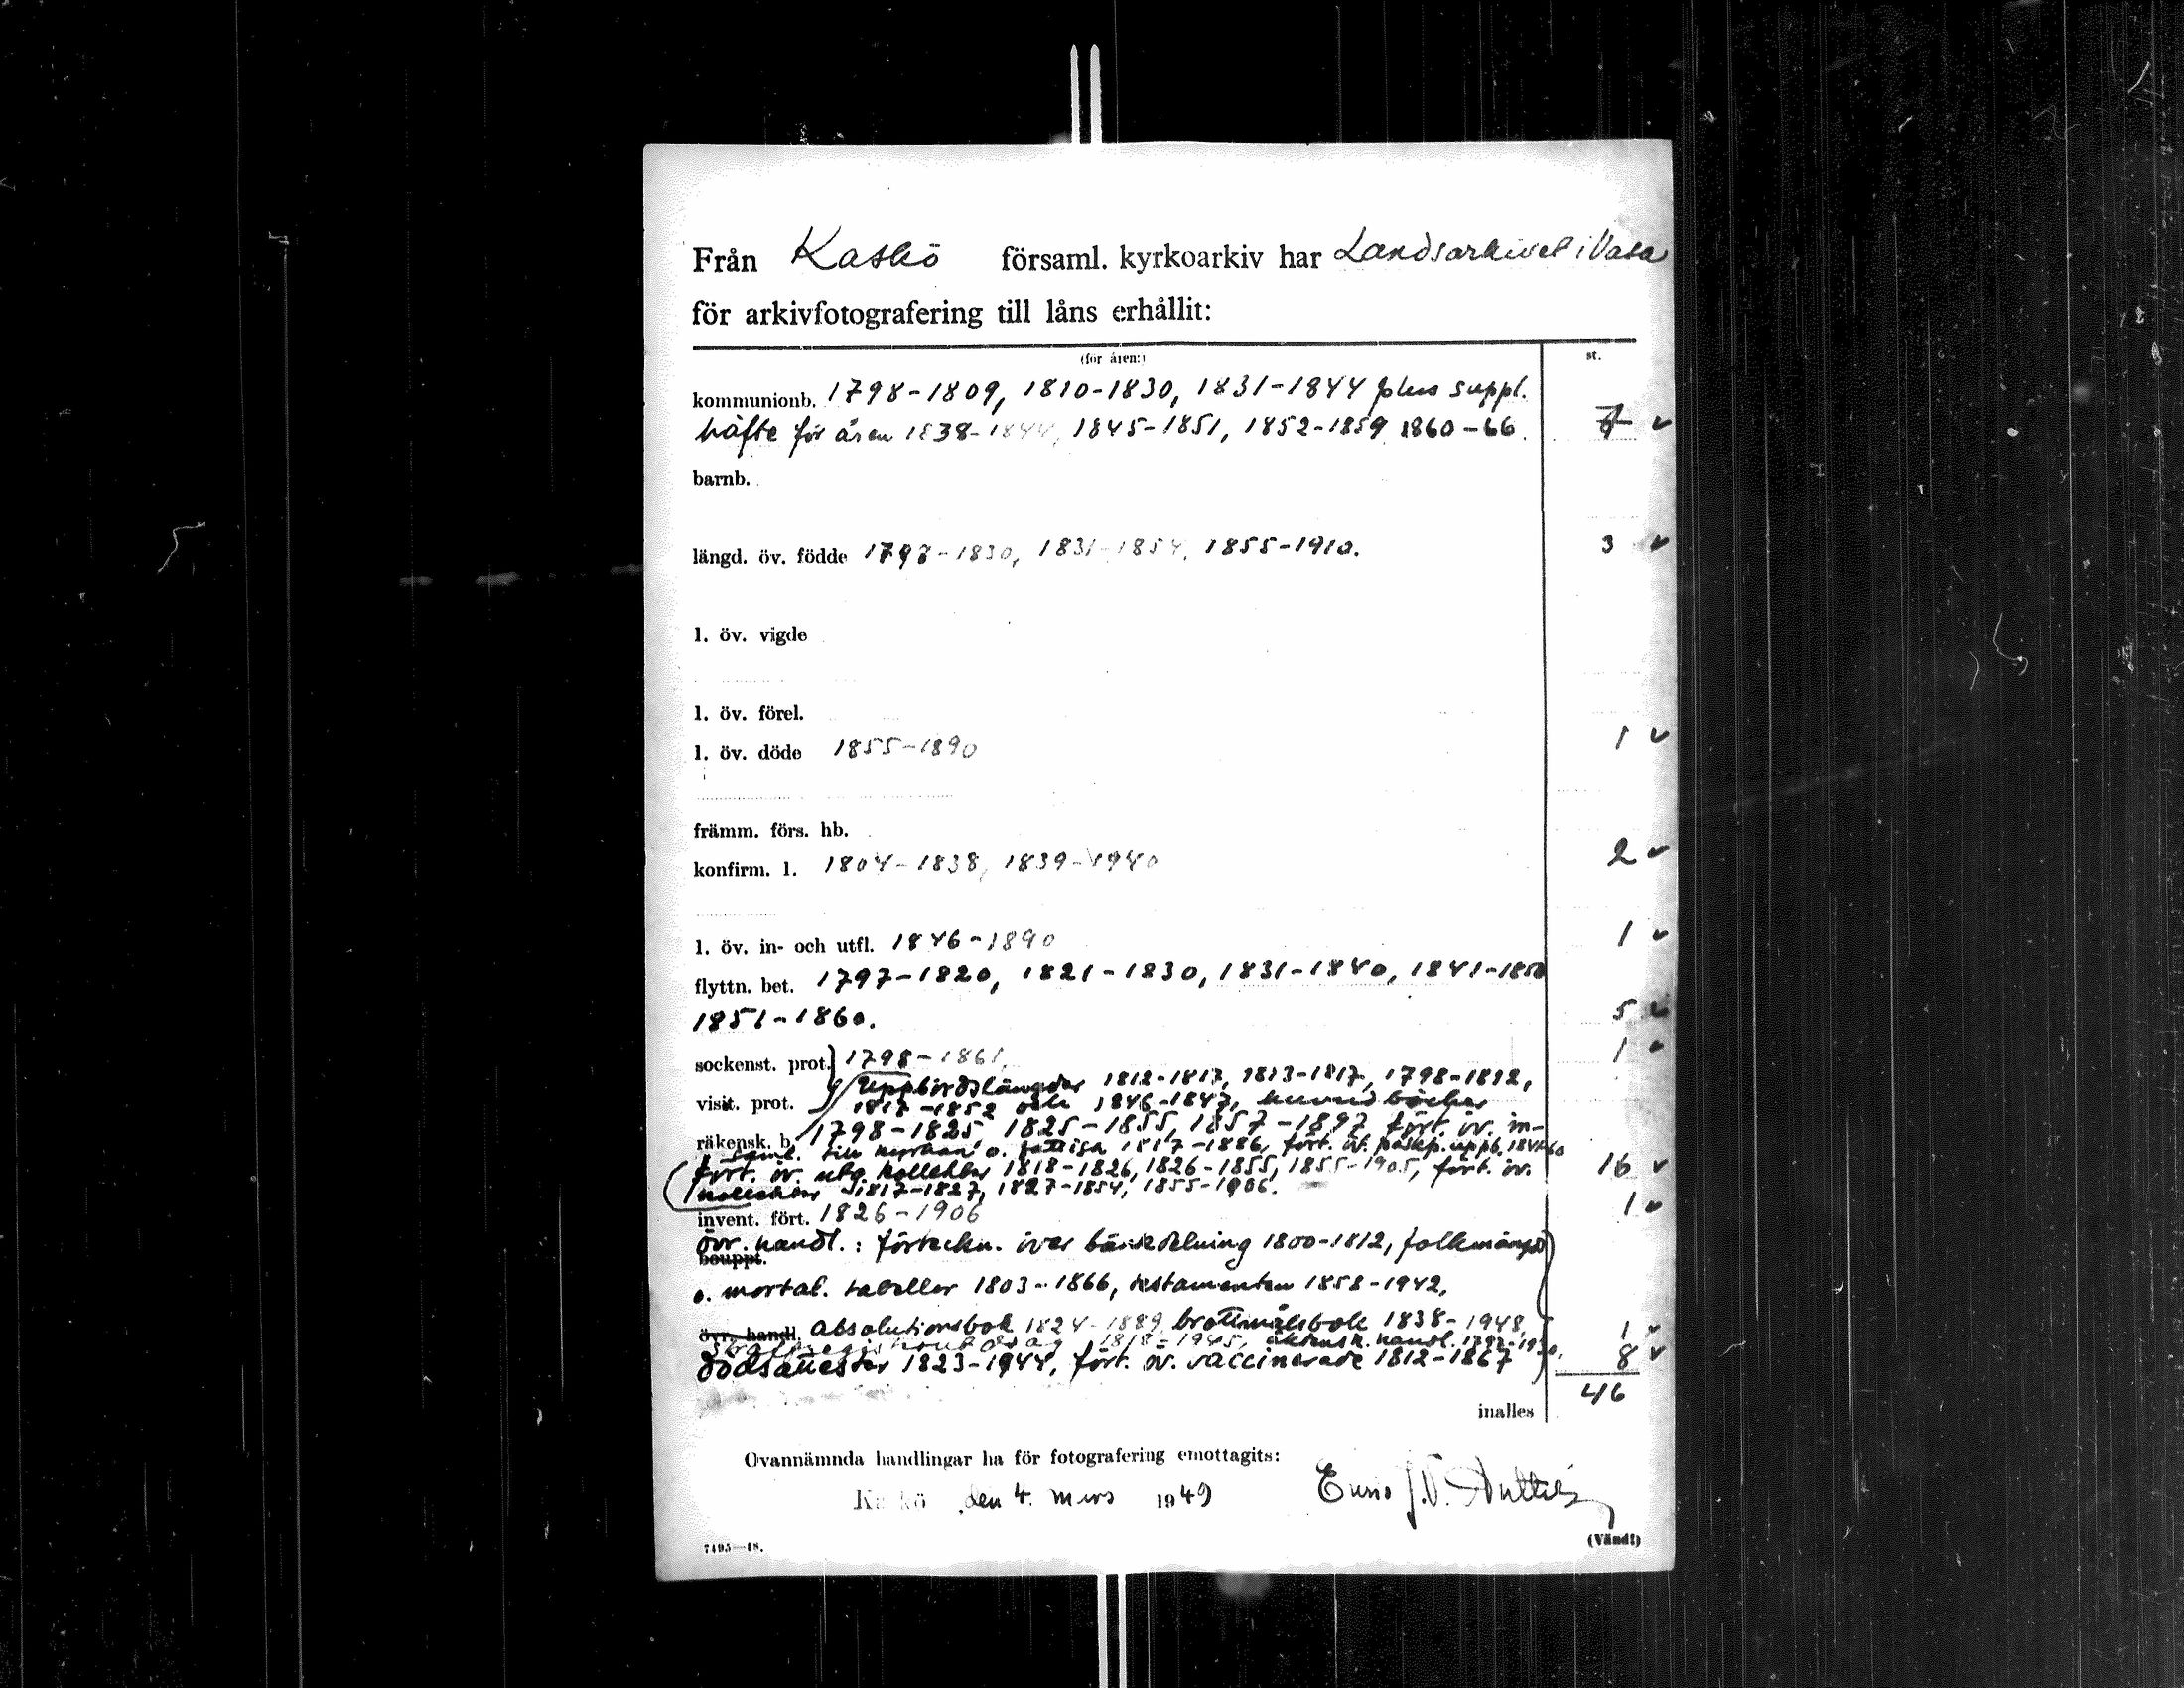 Från Kaskö församl. kyrkoarkiv har Landsarkivet i Vasa
för arkivfotografering till låns erhållit:
(för åren:) st.
kommunionb. 1798-1809, 1810-1830, 1831-1844 plus suppl.
häfte för åren 1838-1844, 1845-1851, 1852-1859, 1860-66. 7
barnb.
längd. öv. födde 1798-1830, 1831-1854, 1855-1910. 3
l. öv. vigde
l. öv. förel.
l. öv. döde 1855-1890 1
främm. förs. hb.
konfirm. l. 1804-1838, 1839-1940 2
l. öv. in- och utfl. 1846-1890 1
flyttn. bet. 1797-1820, 1821-1830, 1831-1840, 1841-1850
1851-1860. 5
sockenst. prot. 1798-1861, 1
Uppbördslängder 1812-1813, 1813-1817, 1798-1812,
visit. prot. 1817-1852 och 1846-1847, huvudböcker
räkensk. b. 1798-1825, 1825-1855, 1857-1897, fört. öv. in-
saml. till kyrkan o. fattiga 1817-1886, fört. öv. påskp. uppb.
fört. öv. utg. kollekter 1818-1826, 1826-1855, 1855-1905, fört. öv. 16
kollekter 1817-1827, 1827-1854, 1855-1906.
invent. fört. 1826-1906 1
övr. handl.: förteckn. över bänkdelning 1800-1812, folkmängd
bouppt.
o. mortal. tabeller 1803-1866, testamenten 1858-1942,
övr. handl. Absolutionsbok 1824-1889, brottmålsbok 1838-1948, 1
straffregisterutdrag 1818-1945, äktensk. handl.
dödsattester 1823-1944, fört. öv. vaccinerade 1812-1867 8
46
inalles
Ovannämnda handlingar ha för fotografering emottagits:
Kaskö den 4. mars 1949
7495—48. (Vänd!)